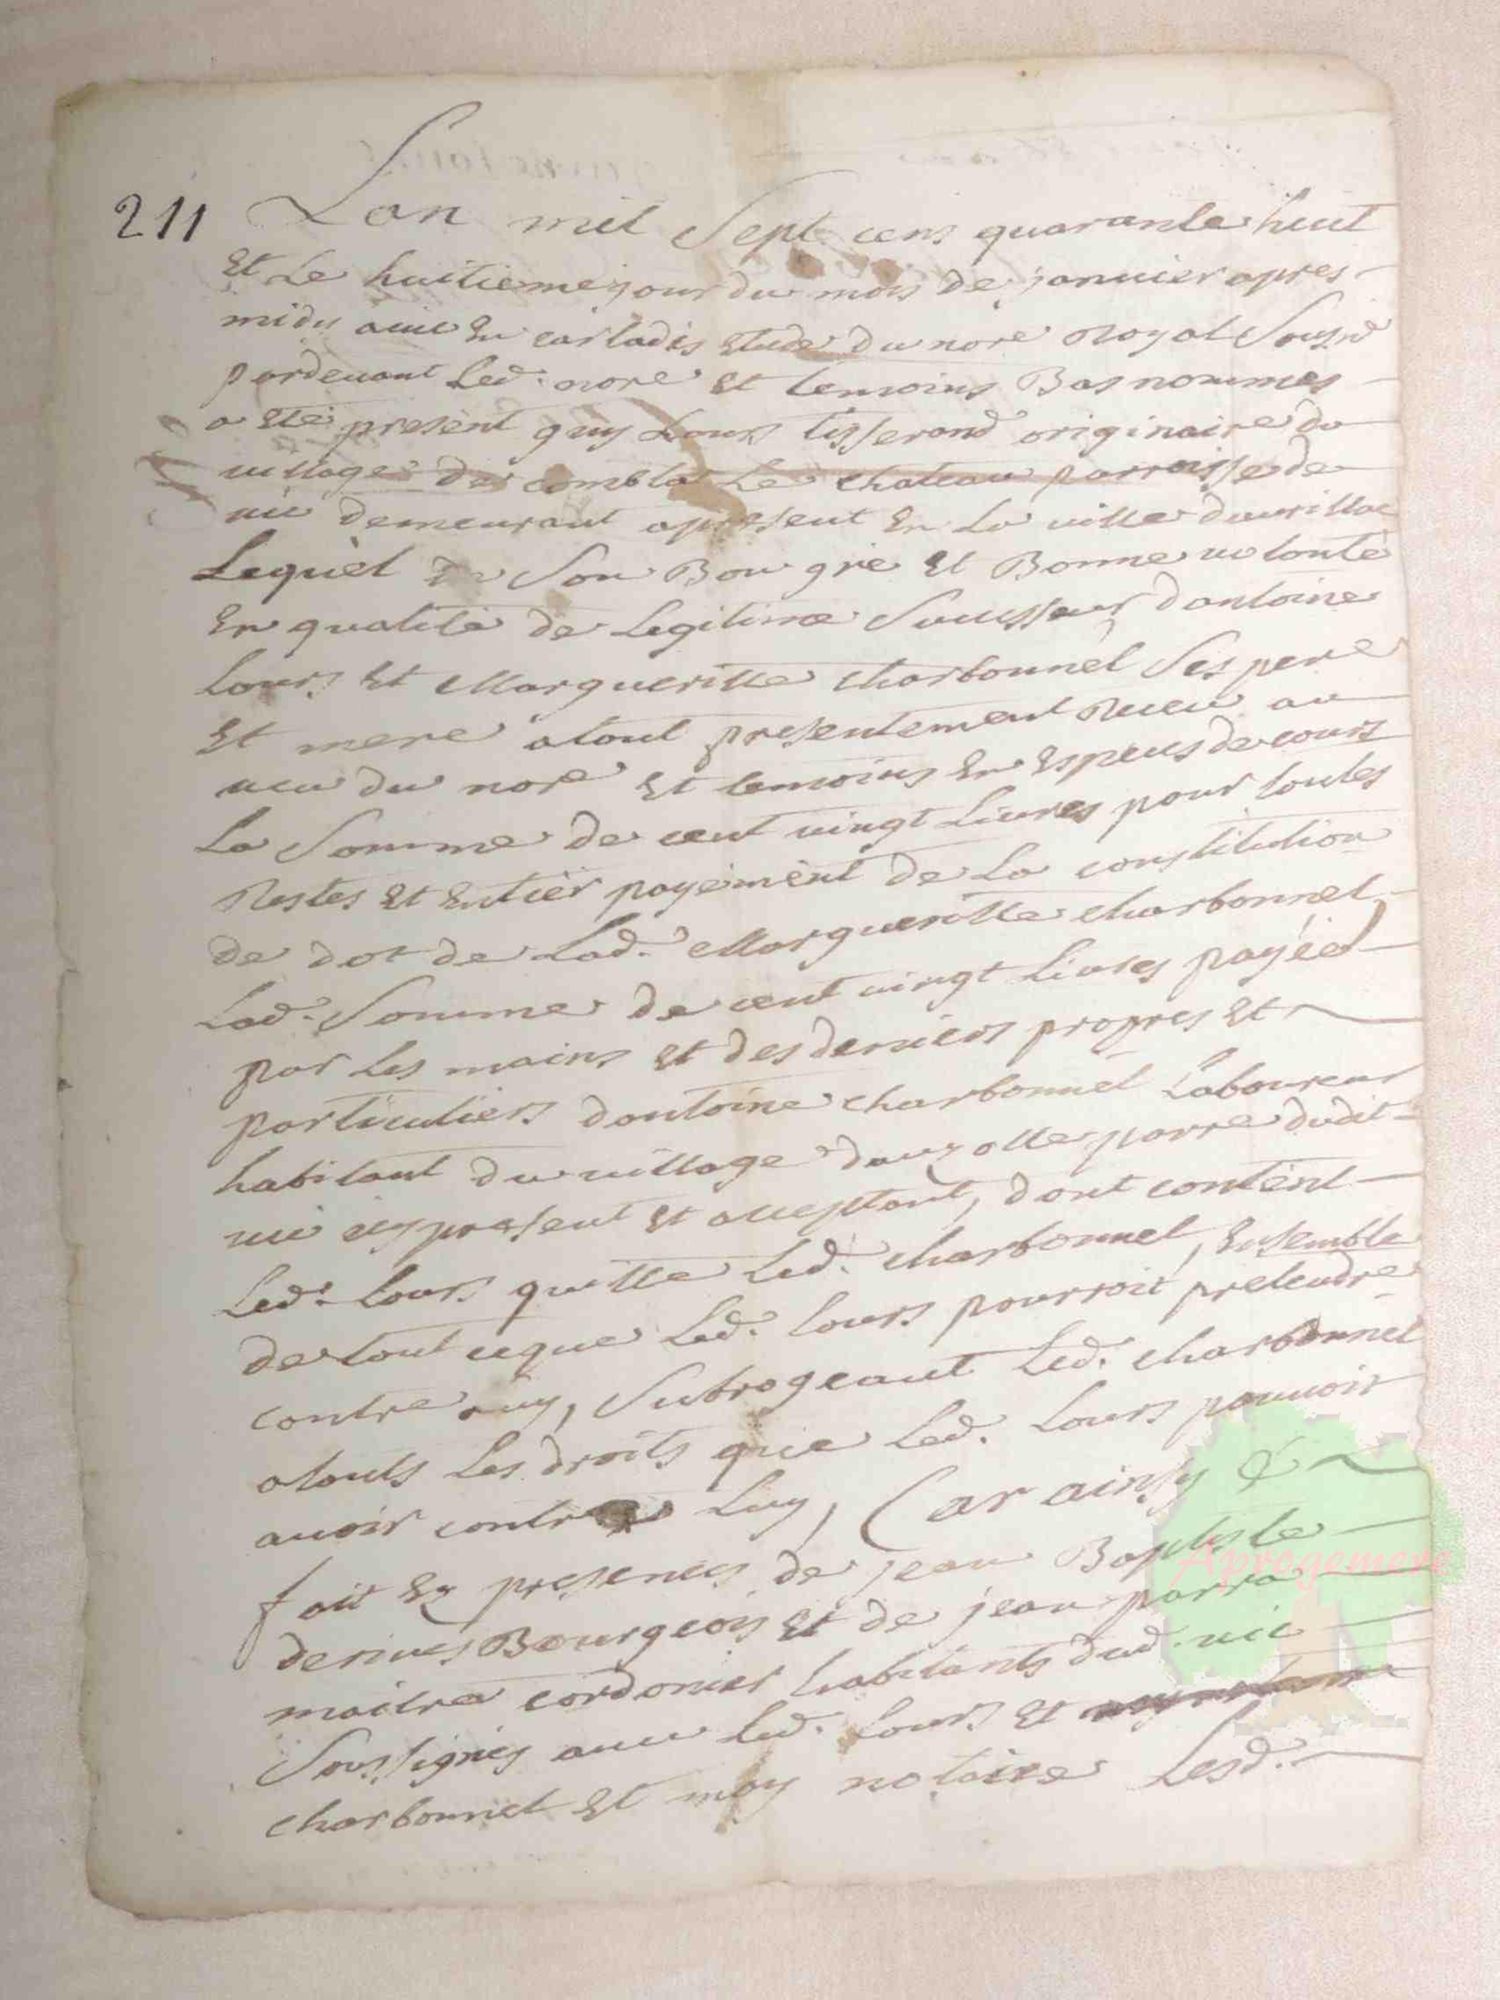 211 Lan mil Sept cens quarante huit
Et Le huitieme jour du mois de janvier apres
midy a vic En carladis Etude du nore Royal Sousné
pardevant Led. nore Et temoins Bas nommes
a Eté present guy Lours tisserand originaire du
village de comblat Le chateau parroisse de
vic demeurant apresent En La ville daurillac
Lequel de Son Bon gré Et Bonne volonté
En qualité de Legitime Successeur dantoine
Lours Et Margueritte charbonnel Ses pere
Et mere a tout presentement Receu au
veu du nore Et temoins En Especes de cours
La Somme de cent vingt Livres pour toutes
Restes Et Entier payement de La constitution
de dot de Lad. Margueritte charbonnel
Lad. Somme de cent vingt Livres payée
par Les mains Et des deniers propres Et
particuliers dantoine charbonnel Laboureur
habitant du village dauzolle parre dudit
vic icy present Et acceptant, dont contènt
Led. Lours quitte Led. charbonnel, Ensemble
de tout ceque Led. Lours pourroit pretendre
contre luy, Subrogeant Led. charbonnel
a touts Les droits que Led. Lours pouvoit
avoir contre Luy, Car ainsy &
fait En presences de jean Baptiste
derives Bourgeois Et de jean parra
maitre cordonier habitants dud. vic
Soussignes avec Led. Lours Et
charbonnel Et moy notaire Lesd.
Aprogemere